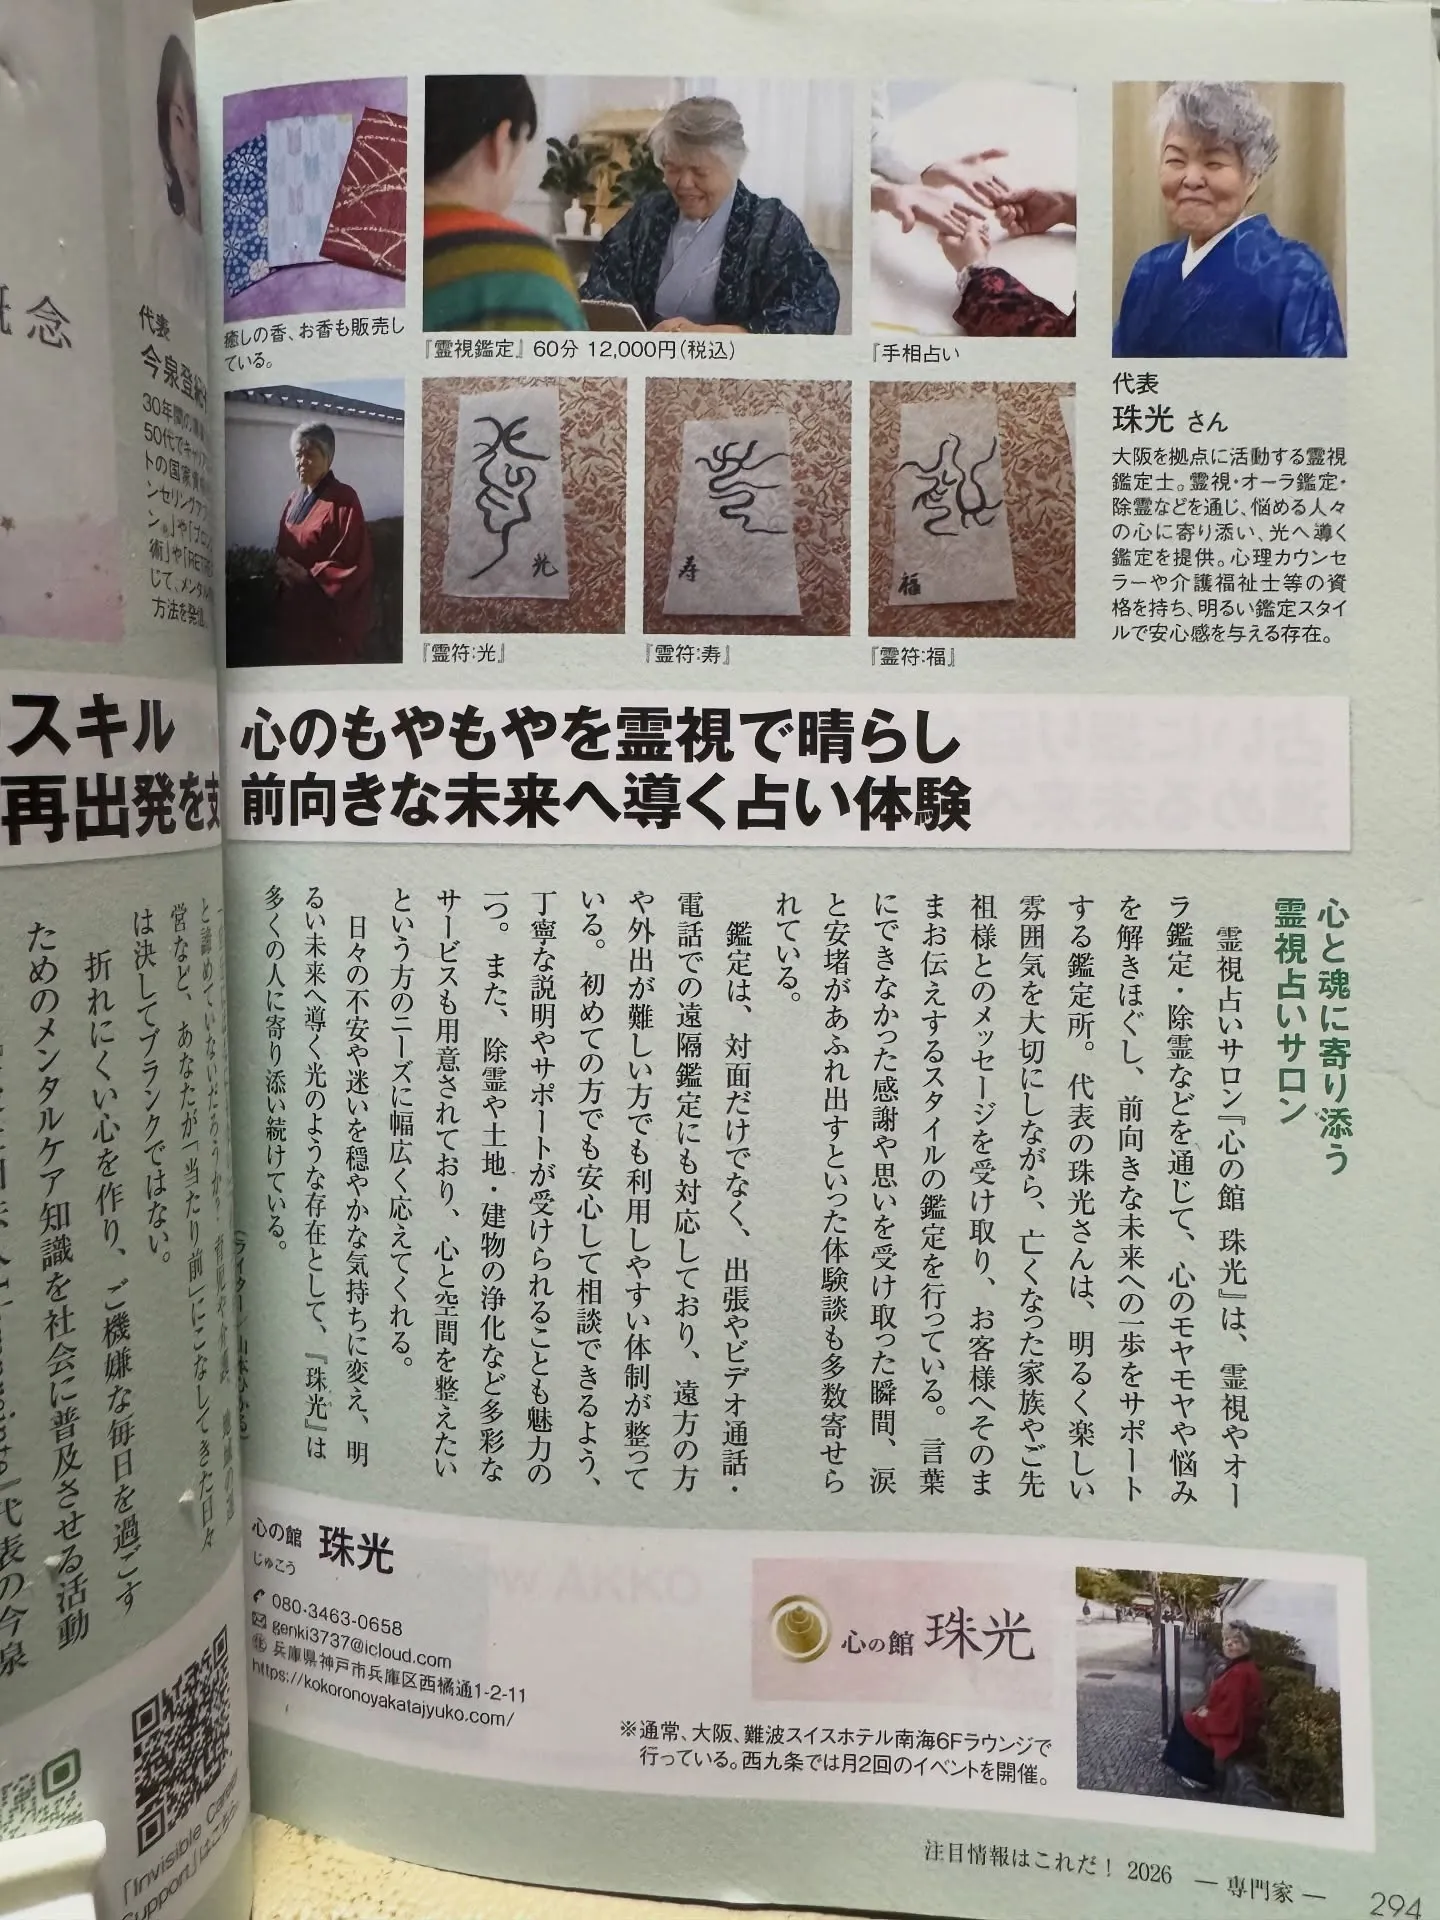 癒しの香、お香も販売し
ている。
『霊視鑑定』60分 12,000円(税込)
『手相占い
代表
珠光 さん
大阪を拠点に活動する霊視
鑑定士。霊視・オーラ鑑定・
除霊などを通じ、悩める人々
の心に寄り添い、光へ導く
鑑定を提供。心理カウンセ
ラーや介護福祉士等の資
格を持ち、明るい鑑定スタイ
ルで安心感を与える存在。
光
寿
福
『霊符:光』
『霊符:寿』
『霊符:福』
心のもやもやを霊視で晴らし
前向きな未来へ導く占い体験
心と魂に寄り添う
霊視占いサロン
霊視占いサロン『心の館 珠光』は、霊視やオー
ラ鑑定・除霊などを通じて、心のモヤモヤや悩み
を解きほぐし、前向きな未来への一歩をサポート
する鑑定所。代表の珠光さんは、明るく楽しい
雰囲気を大切にしながら、亡くなった家族やご先
祖様とのメッセージを受け取り、お客様へそのま
まお伝えするスタイルの鑑定を行っている。言葉
にできなかった感謝や思いを受け取った瞬間、涙
と安堵があふれ出すといった体験談も多数寄せら
れている。
鑑定は、対面だけでなく、出張やビデオ通話・
電話での遠隔鑑定にも対応しており、遠方の方
や外出が難しい方でも利用しやすい体制が整って
いる。初めての方でも安心して相談できるよう、
丁寧な説明やサポートが受けられることも魅力の
一つ。また、除霊や土地・建物の浄化など多彩な
サービスも用意されており、心と空間を整えたい
という方のニーズに幅広く応えてくれる。
日々の不安や迷いを穏やかな気持ちに変え、明
るい未来へ導く光のような存在として、『珠光』は
多くの人に寄り添い続けている。
心の館 珠光
じゅこう
080-3463-0658
genki3737@icloud.com
住 兵庫県神戸市兵庫区西橘通1-2-11
https://kokoronoyakatajyuko.com/
心の館 珠光
※通常、大阪、難波スイスホテル南海6Fラウンジで
行っている。西九条では月2回のイベントを開催。
注目情報はこれだ！ 2026 ー 専門家 ー 294
念
代表
今泉登紀
30年間の
50代でキャリア
トの国家資
ンセリング
術」や「RET
じて、メンタル
方法を発信。
スキル
再出発を支
と諦めていないだろうか？育児や介護、地域の運
営など、あなたが「当たり前」にこなしてきた日々
は決してブランクではない。
折れにくい心を作り、ご機嫌な毎日を過ごす
ためのメンタルケア知識を社会に普及させる活動
代表の今泉
「Invisible Career
Support」はこちら